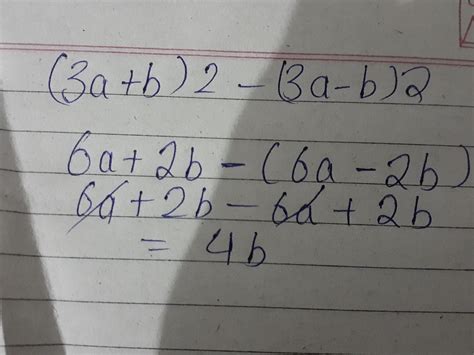 (3a+b)2 - (3a-b)2
6a + 2b - (6a - 2b)
6a + 2b - 6a + 2b
= 4b